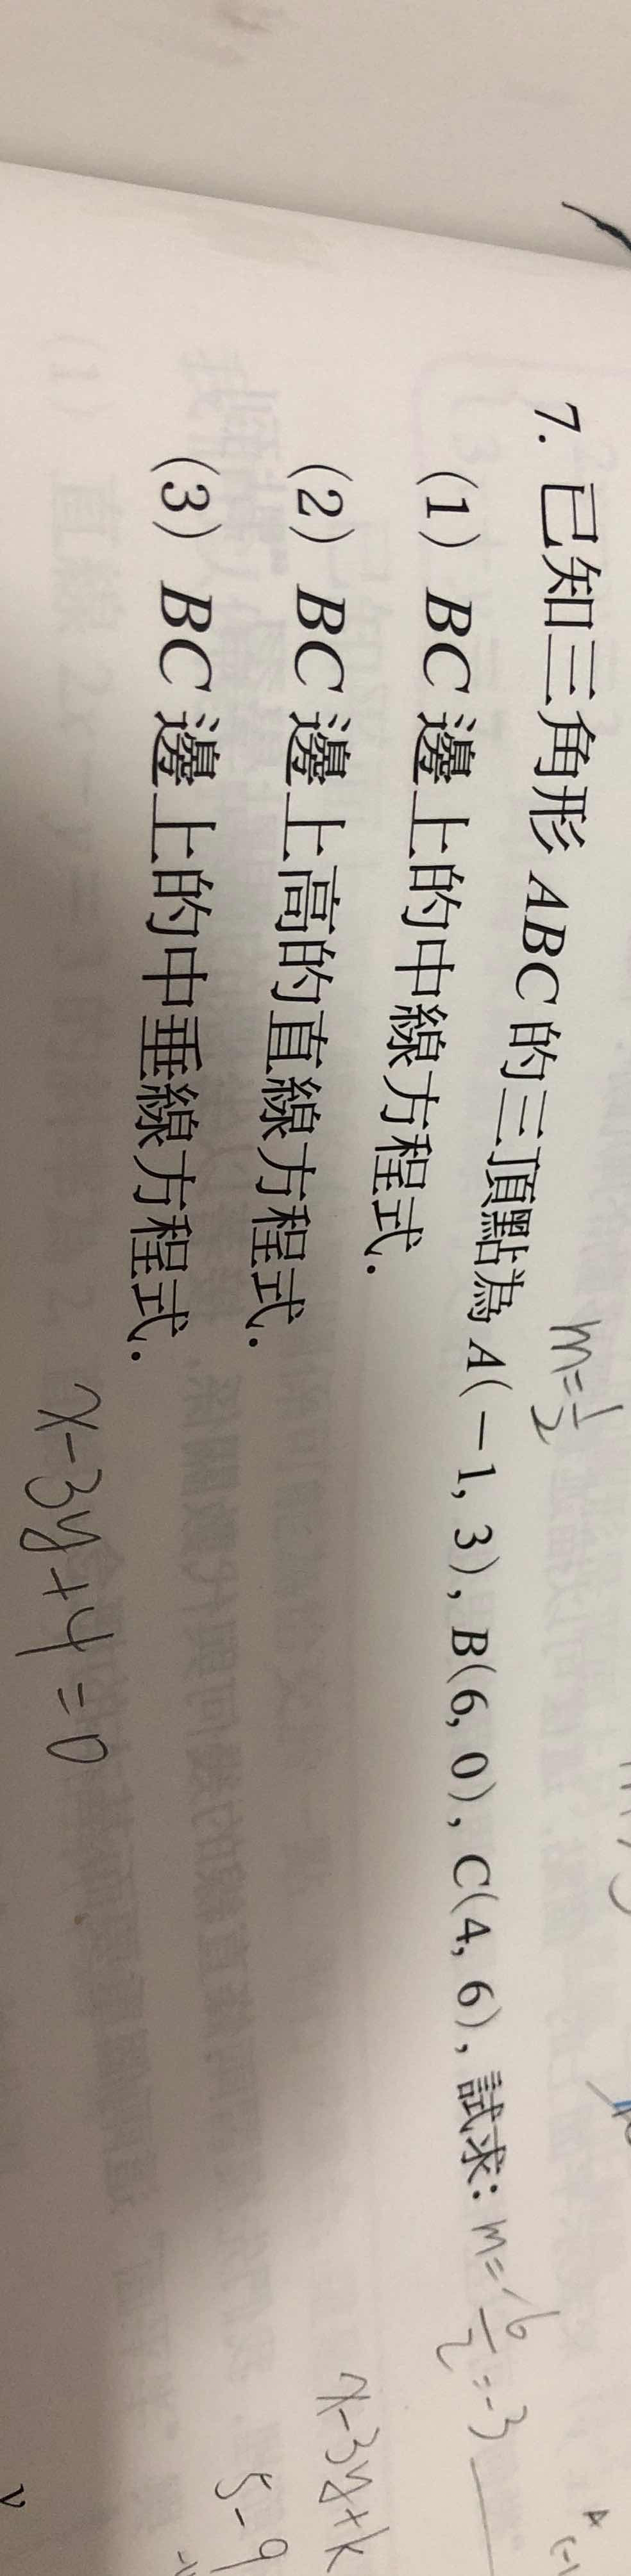 m=1/2
7. 已知三角形 ABC 的三頂點為 A(－1, 3), B(6, 0), C(4, 6), 試求: m=-6/2=-3
(1) BC 邊上的中線方程式.
(2) BC 邊上高的直線方程式.
x-3y+k
(3) BC 邊上的中垂線方程式.
5-9
x-3y+4=0